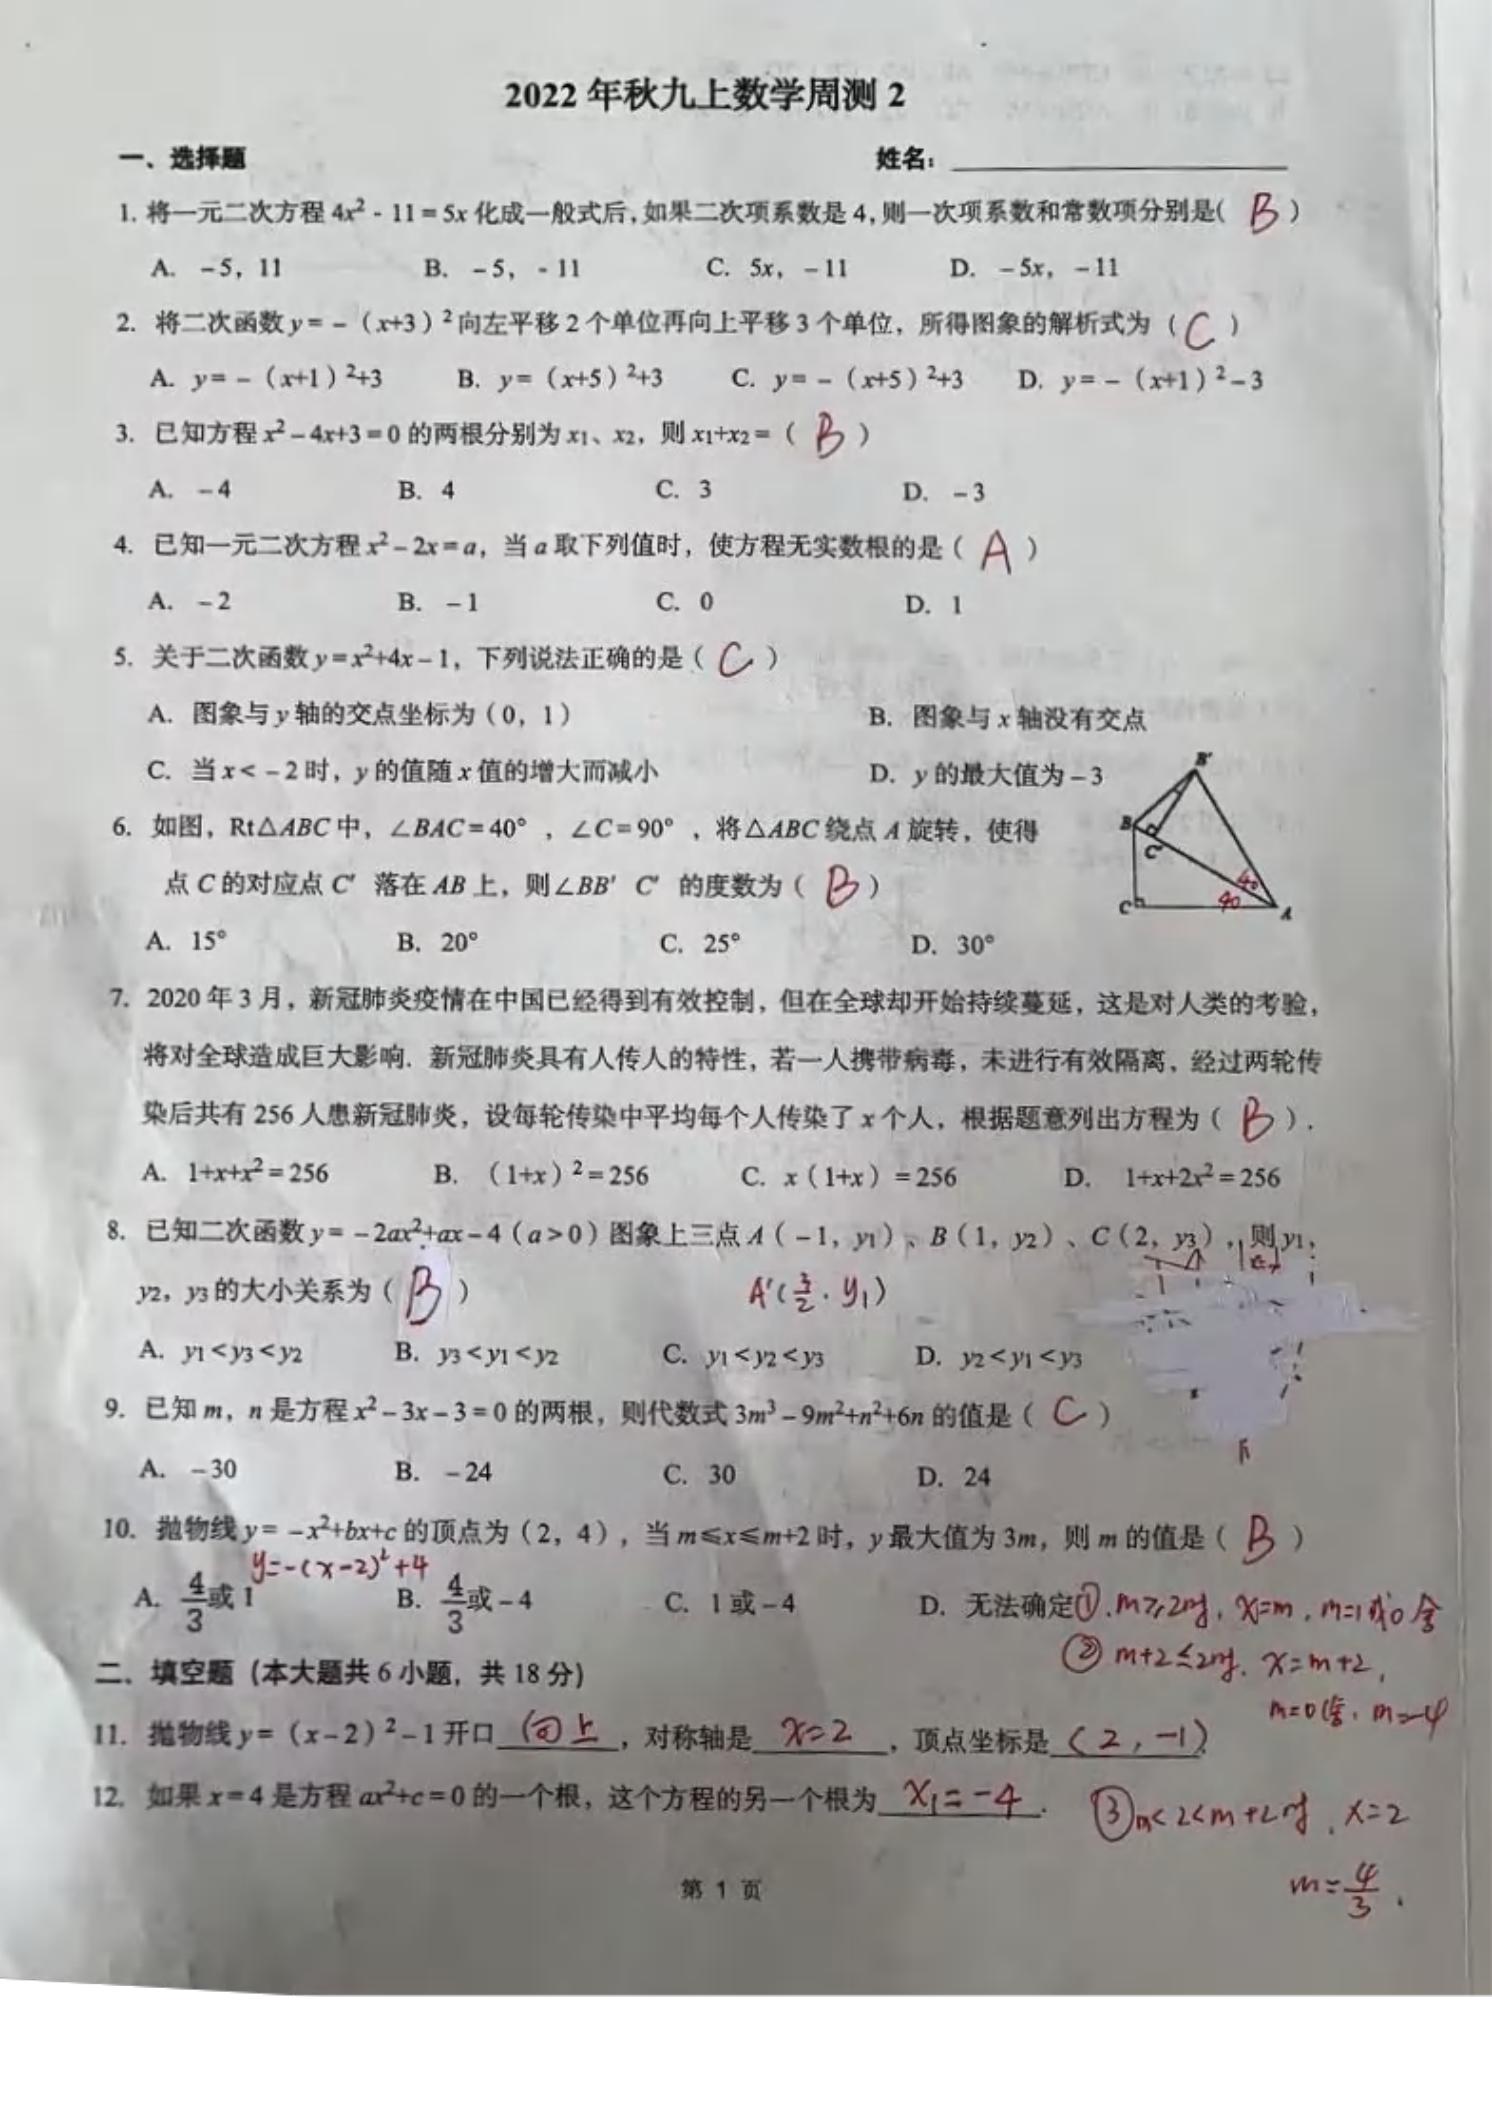 2022年秋九上数学周测2
一、选择题 姓名：
1. 将一元二次方程 4x² - 11 = 5x 化成一般式后,如果二次项系数是 4,则一次项系数和常数项分别是( B )
A. －5，11 B. －5，- 11 C. 5x，－11 D. －5x，－11
2. 将二次函数 y=－（x+3）²向左平移 2 个单位再向上平移 3 个单位，所得图象的解析式为（ C ）
A. y=－（x+1）²+3 B. y=（x+5）²+3 C. y=－（x+5）²+3 D. y=－（x+1）²－3
3. 已知方程 x²－4x+3=0 的两根分别为 x₁、x₂，则 x₁+x₂=（ B ）
A. －4 B. 4 C. 3 D. －3
4. 已知一元二次方程 x²－2x=a，当 a 取下列值时，使方程无实数根的是（ A ）
A. －2 B. －1 C. 0 D. 1
5. 关于二次函数 y=x²+4x－1，下列说法正确的是（ C ）
A. 图象与 y 轴的交点坐标为（0，1） B. 图象与 x 轴没有交点
C. 当 x<－2 时，y 的值随 x 值的增大而减小 D. y 的最大值为－3
6. 如图，Rt△ABC 中，∠BAC=40°，∠C=90°，将△ABC 绕点 A 旋转，使得
点 C 的对应点 C′ 落在 AB 上，则∠BB′ C′ 的度数为（ B ）
B′
B
C′
C
A
40
40
A. 15° B. 20° C. 25° D. 30°
7. 2020 年 3 月，新冠肺炎疫情在中国已经得到有效控制，但在全球却开始持续蔓延，这是对人类的考验，
将对全球造成巨大影响. 新冠肺炎具有人传人的特性，若一人携带病毒，未进行有效隔离，经过两轮传
染后共有 256 人患新冠肺炎，设每轮传染中平均每个人传染了 x 个人，根据题意列出方程为（ B ）.
A. 1+x+x²=256 B. （1+x）²=256 C. x（1+x）=256 D. 1+x+2x²=256
8. 已知二次函数 y=－2ax²+ax－4（a>0）图象上三点 A（－1，y₁）、B（1，y₂）、C（2，y₃），则 y₁，
y₂，y₃的大小关系为（ B ） A′(3/2 . y₁)
A. y₁<y₃<y₂ B. y₃<y₁<y₂ C. y₁<y₂<y₃ D. y₂<y₁<y₃
9. 已知 m，n 是方程 x²－3x－3=0 的两根，则代数式 3m³－9m²+n²+6n 的值是（ C ）
A. －30 B. －24 C. 30 D. 24
10. 抛物线 y=－x²+bx+c 的顶点为（2，4），当 m≤x≤m+2 时，y 最大值为 3m，则 m 的值是（ B ）
y=-(x-2)²+4
A. 4/3或 1 B. 4/3或－4 C. 1 或－4 D. 无法确定
① m≥2时, x=m, m=1或0 舍
② m+2≤2时. x=m+2,
m=0(舍, m=-4
二、填空题（本大题共 6 小题，共 18 分）
11. 抛物线 y=（x－2）²－1 开口 向上 ，对称轴是 x=2 ，顶点坐标是 (2,-1).
12. 如果 x=4 是方程 ax²+c=0 的一个根，这个方程的另一个根为 x₁=-4 .
③ m<2<m+2时, x=2
m=4/3.
第 1 页